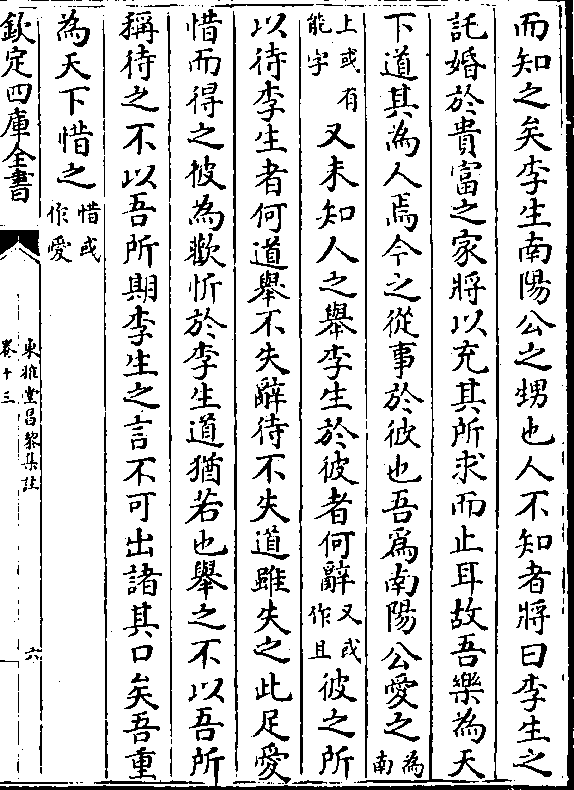 而知之矣李生南陽公之甥也人不知者將曰李生之
託婚於貴富之家將以充其所求而止耳故吾樂為天
下道其為人焉今之從事於彼也吾爲南陽公愛之為南
上或有能字又未知人之舉李生於彼者何辭又或作且彼之所
以待李生者何道舉不失辭待不失道雖失之此足愛
惜而得之彼為歡忻於李生道猶若也舉之不以吾所
稱待之不以吾所期李生之言不可出諸其口矣吾重
為天下惜之惜或作愛
欽定四庫全書
東雅堂昌黎集註
卷十三
六